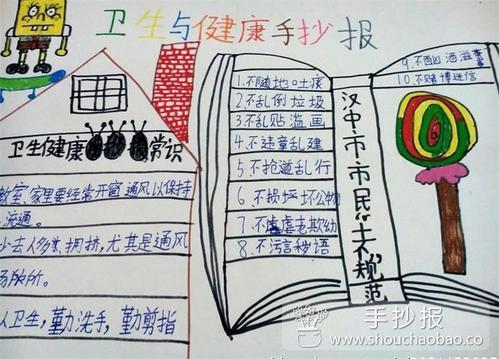 卫生与健康手抄报
卫生健康常识
教室、家里要经常开窗通风以保持
流通。
少去人多、拥挤,尤其是通风
场所。
人卫生,勤洗手,勤剪指
1.不随地吐痰
2.不乱倒垃圾
3.不乱贴滥画
4.不违章乱建
5.不抢道乱行
6.不损坏公物
7.不虐老欺幼
8.不污言秽语
汉中市市民“十不”规范
9.不酗酒滋事
10.不赌博迷信
手抄报
www.shouchaobao.cc